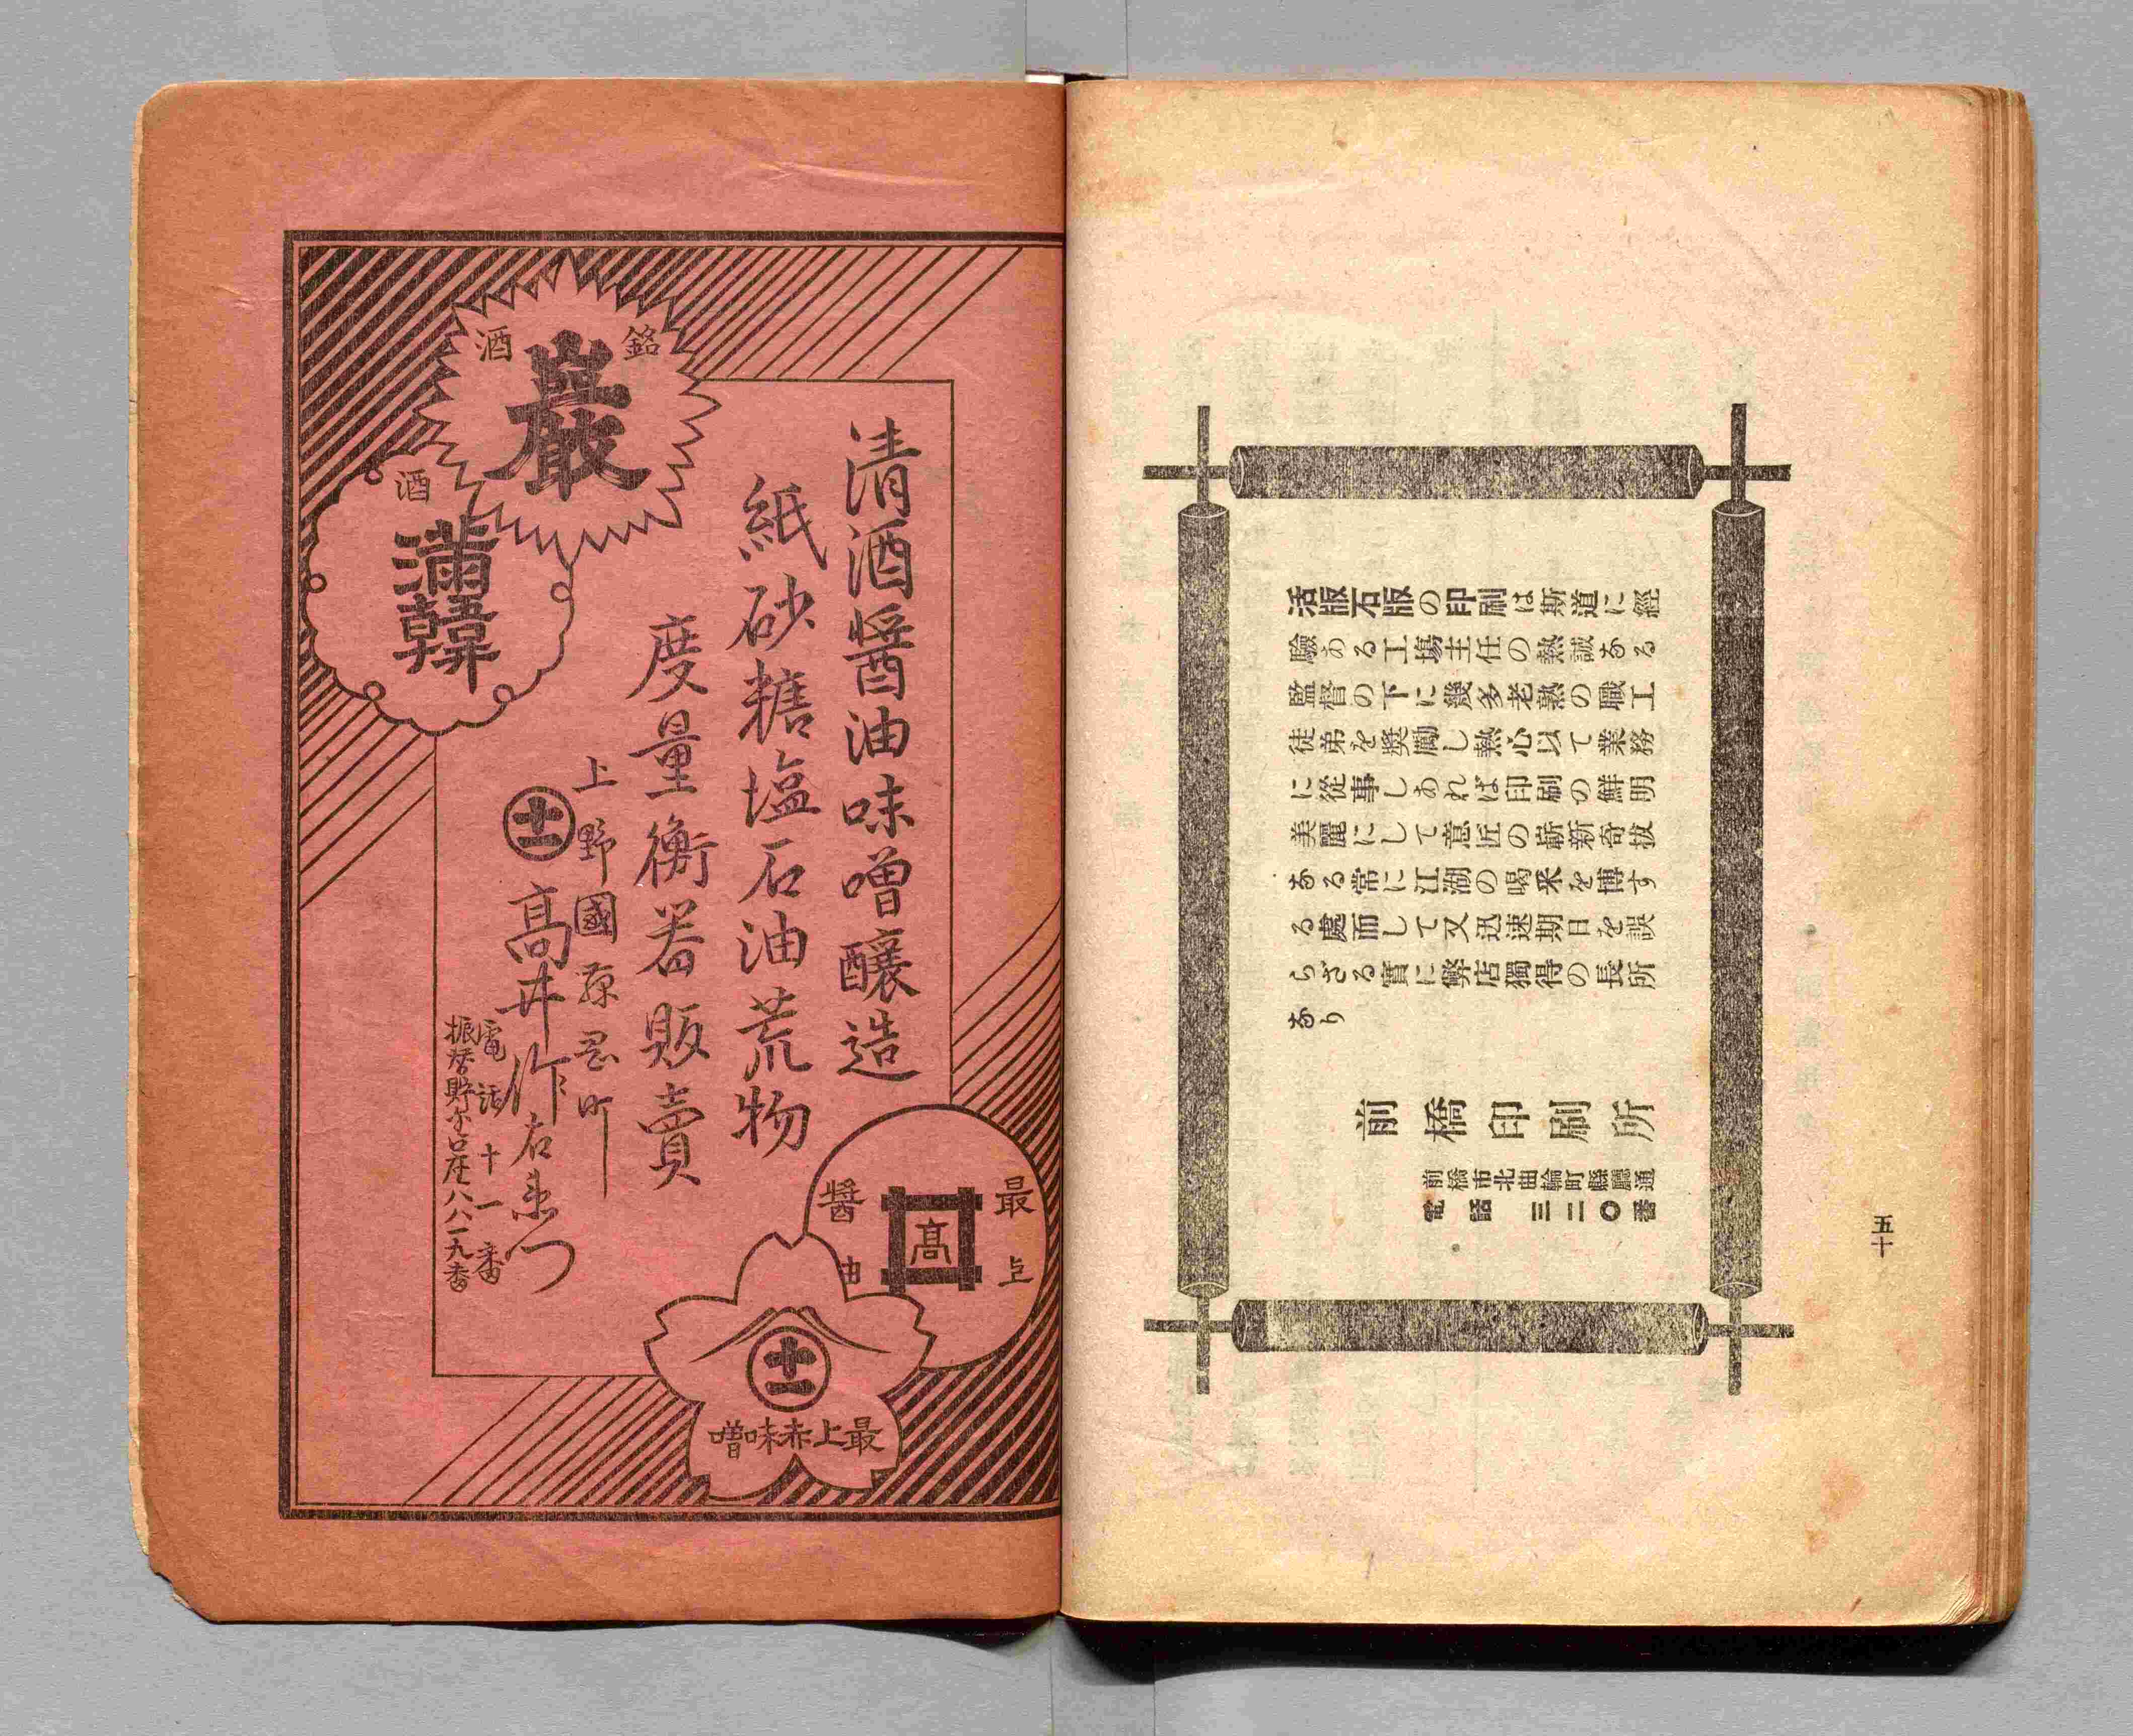 五十
活版石版の印刷は斯道に經
驗ある工塲主任の熱誠なる
監督の下に幾多老熟の職工
徒弟を奬勵し熱心以て業務
に從事しあれば印刷の鮮明
美麗にして意匠の嶄新奇拔
なる常に江湖の喝采を博す
る處而して又迅速期日を誤
らざる實に弊店獨得の長所
なり
前橋印刷所
前橋市北曲輪町縣廳通
電話三二〇番
清酒醤油味噌釀造
紙砂糖塩石油荒物
度量衡器販賣
上野國藤岡町
十一 髙井作右衛門
電話十一番
振替貯金口座八八一九番
銘酒
巖
酒
滿韓
最上
醤油
髙
十一
最上赤味噌